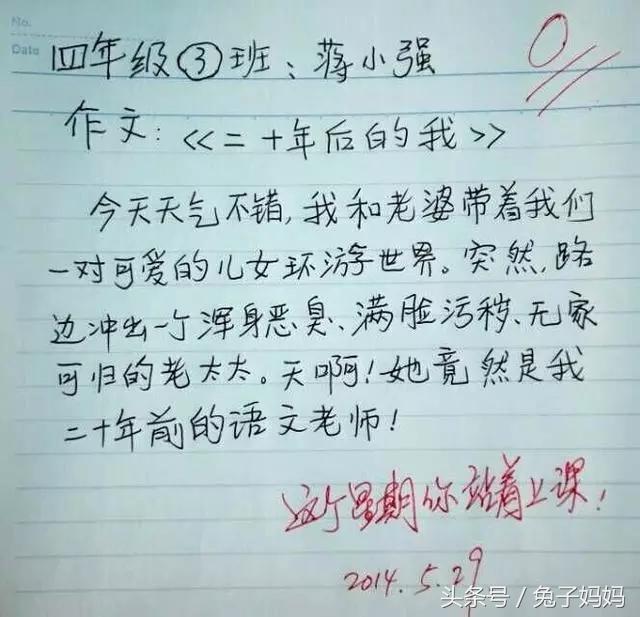 No.
Date
四年级③班：蒋小强
0
作文：《二十年后的我》
今天天气不错，我和老婆带着我们
一对可爱的儿女环游世界。突然，路
边冲出一个浑身恶臭、满脸污秽、无家
可归的老太太。天啊！她竟然是我
二十年前的语文老师！
这个星期你站着上课！
2014.5.29
头条号 / 兔子妈妈